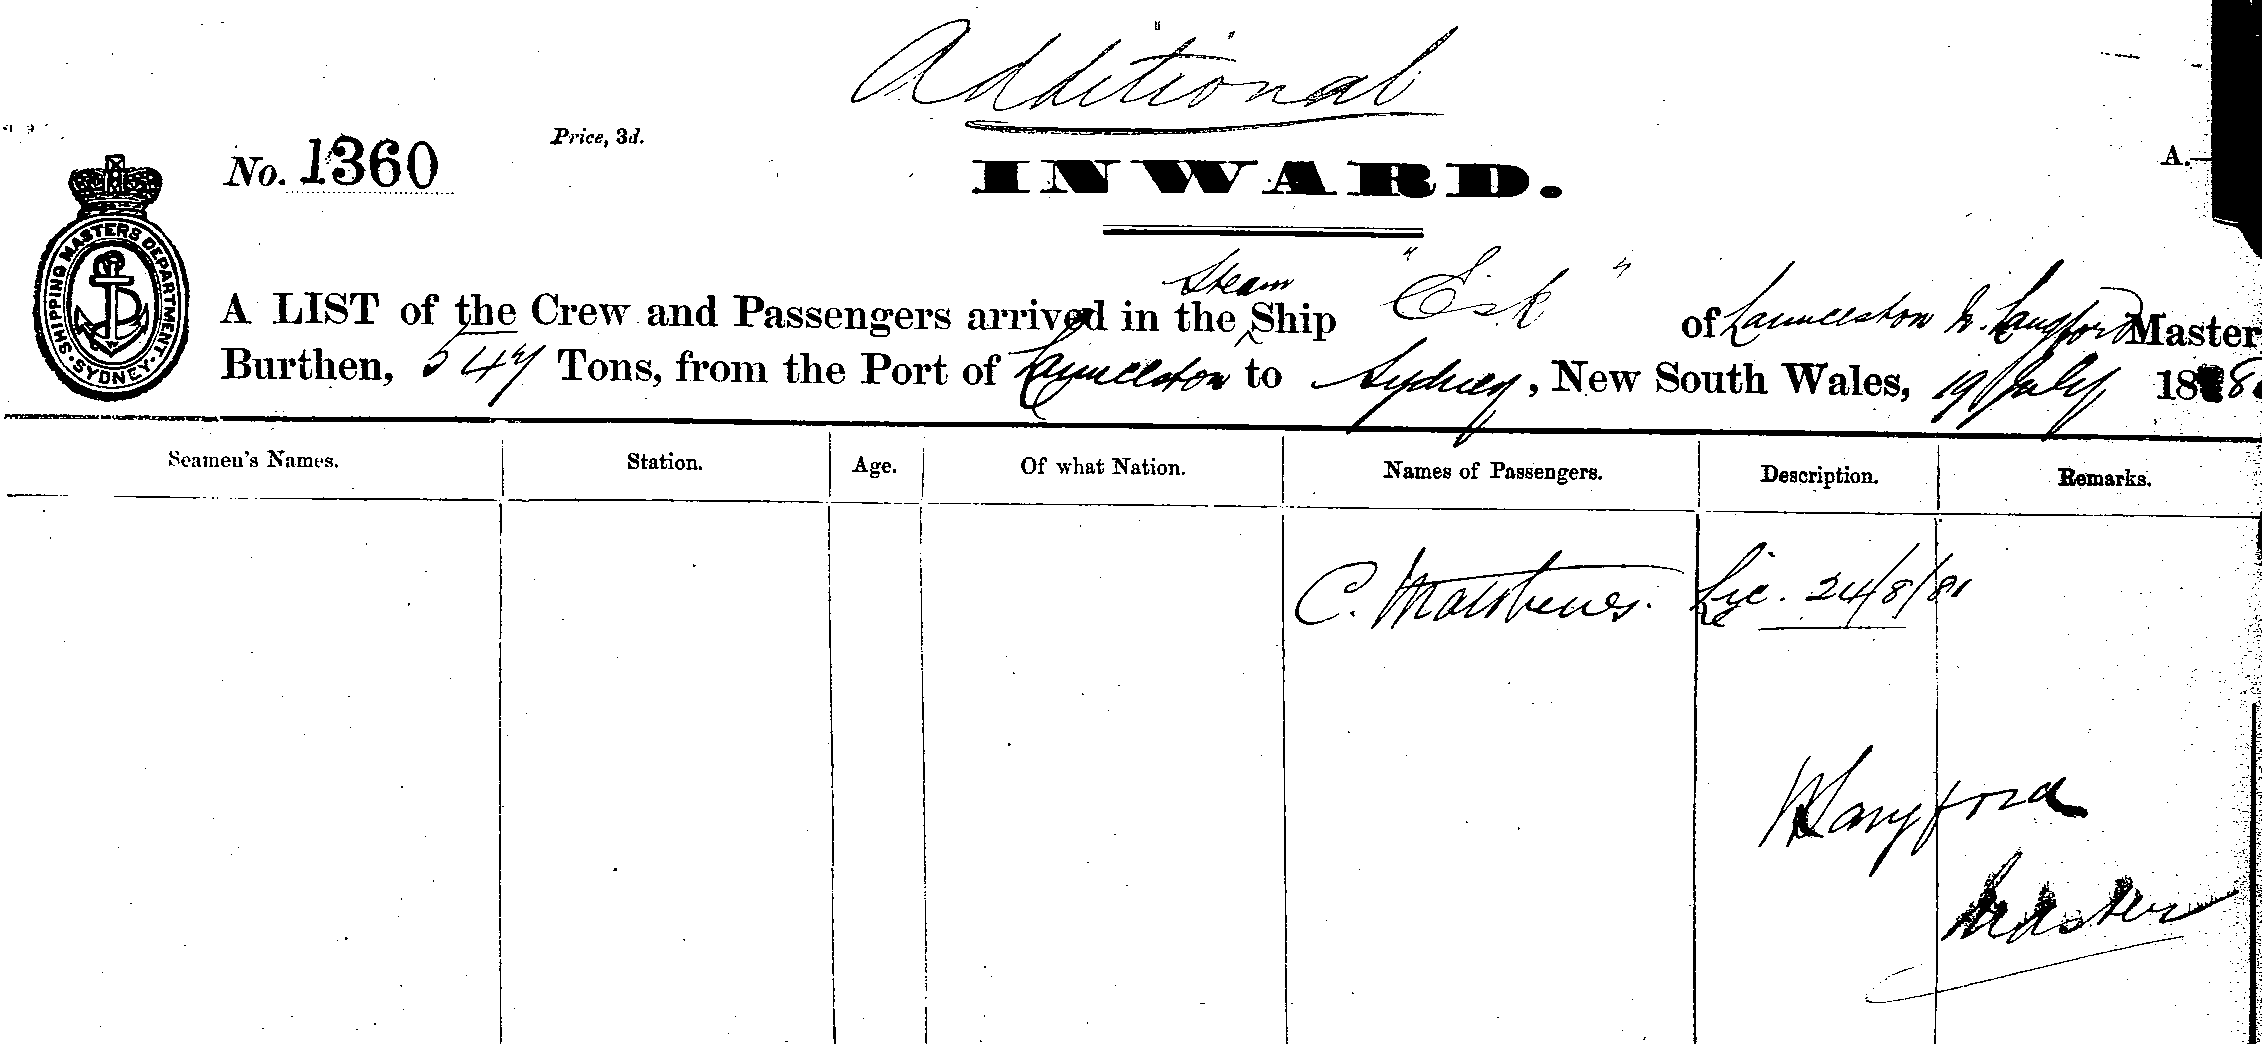 Additional
No. 1360
Price, 3d.
INWARD.
A.—
SHIPPING MASTERS DEPARTMENT · SYDNEY ·
Steam
A LIST of the Crew and Passengers arrived in the Ship "Esk" of Launceston W. Langford Master
Burthen, 547 Tons, from the Port of Launceston to Sydney, New South Wales, 19 July 188
Seamen's Names. Station. Age. Of what Nation. Names of Passengers. Description. Remarks.
C. Matthews. Lic. 24/8/81
W Langford
Master